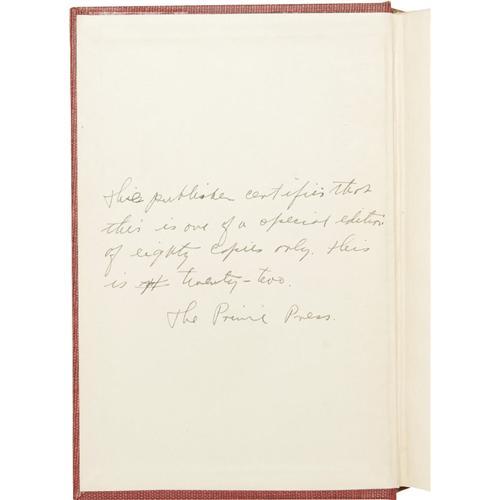 This publisher certifies that
this is one of a special edition
of eighty copies only. This
is # twenty-two.
The Primil Press.